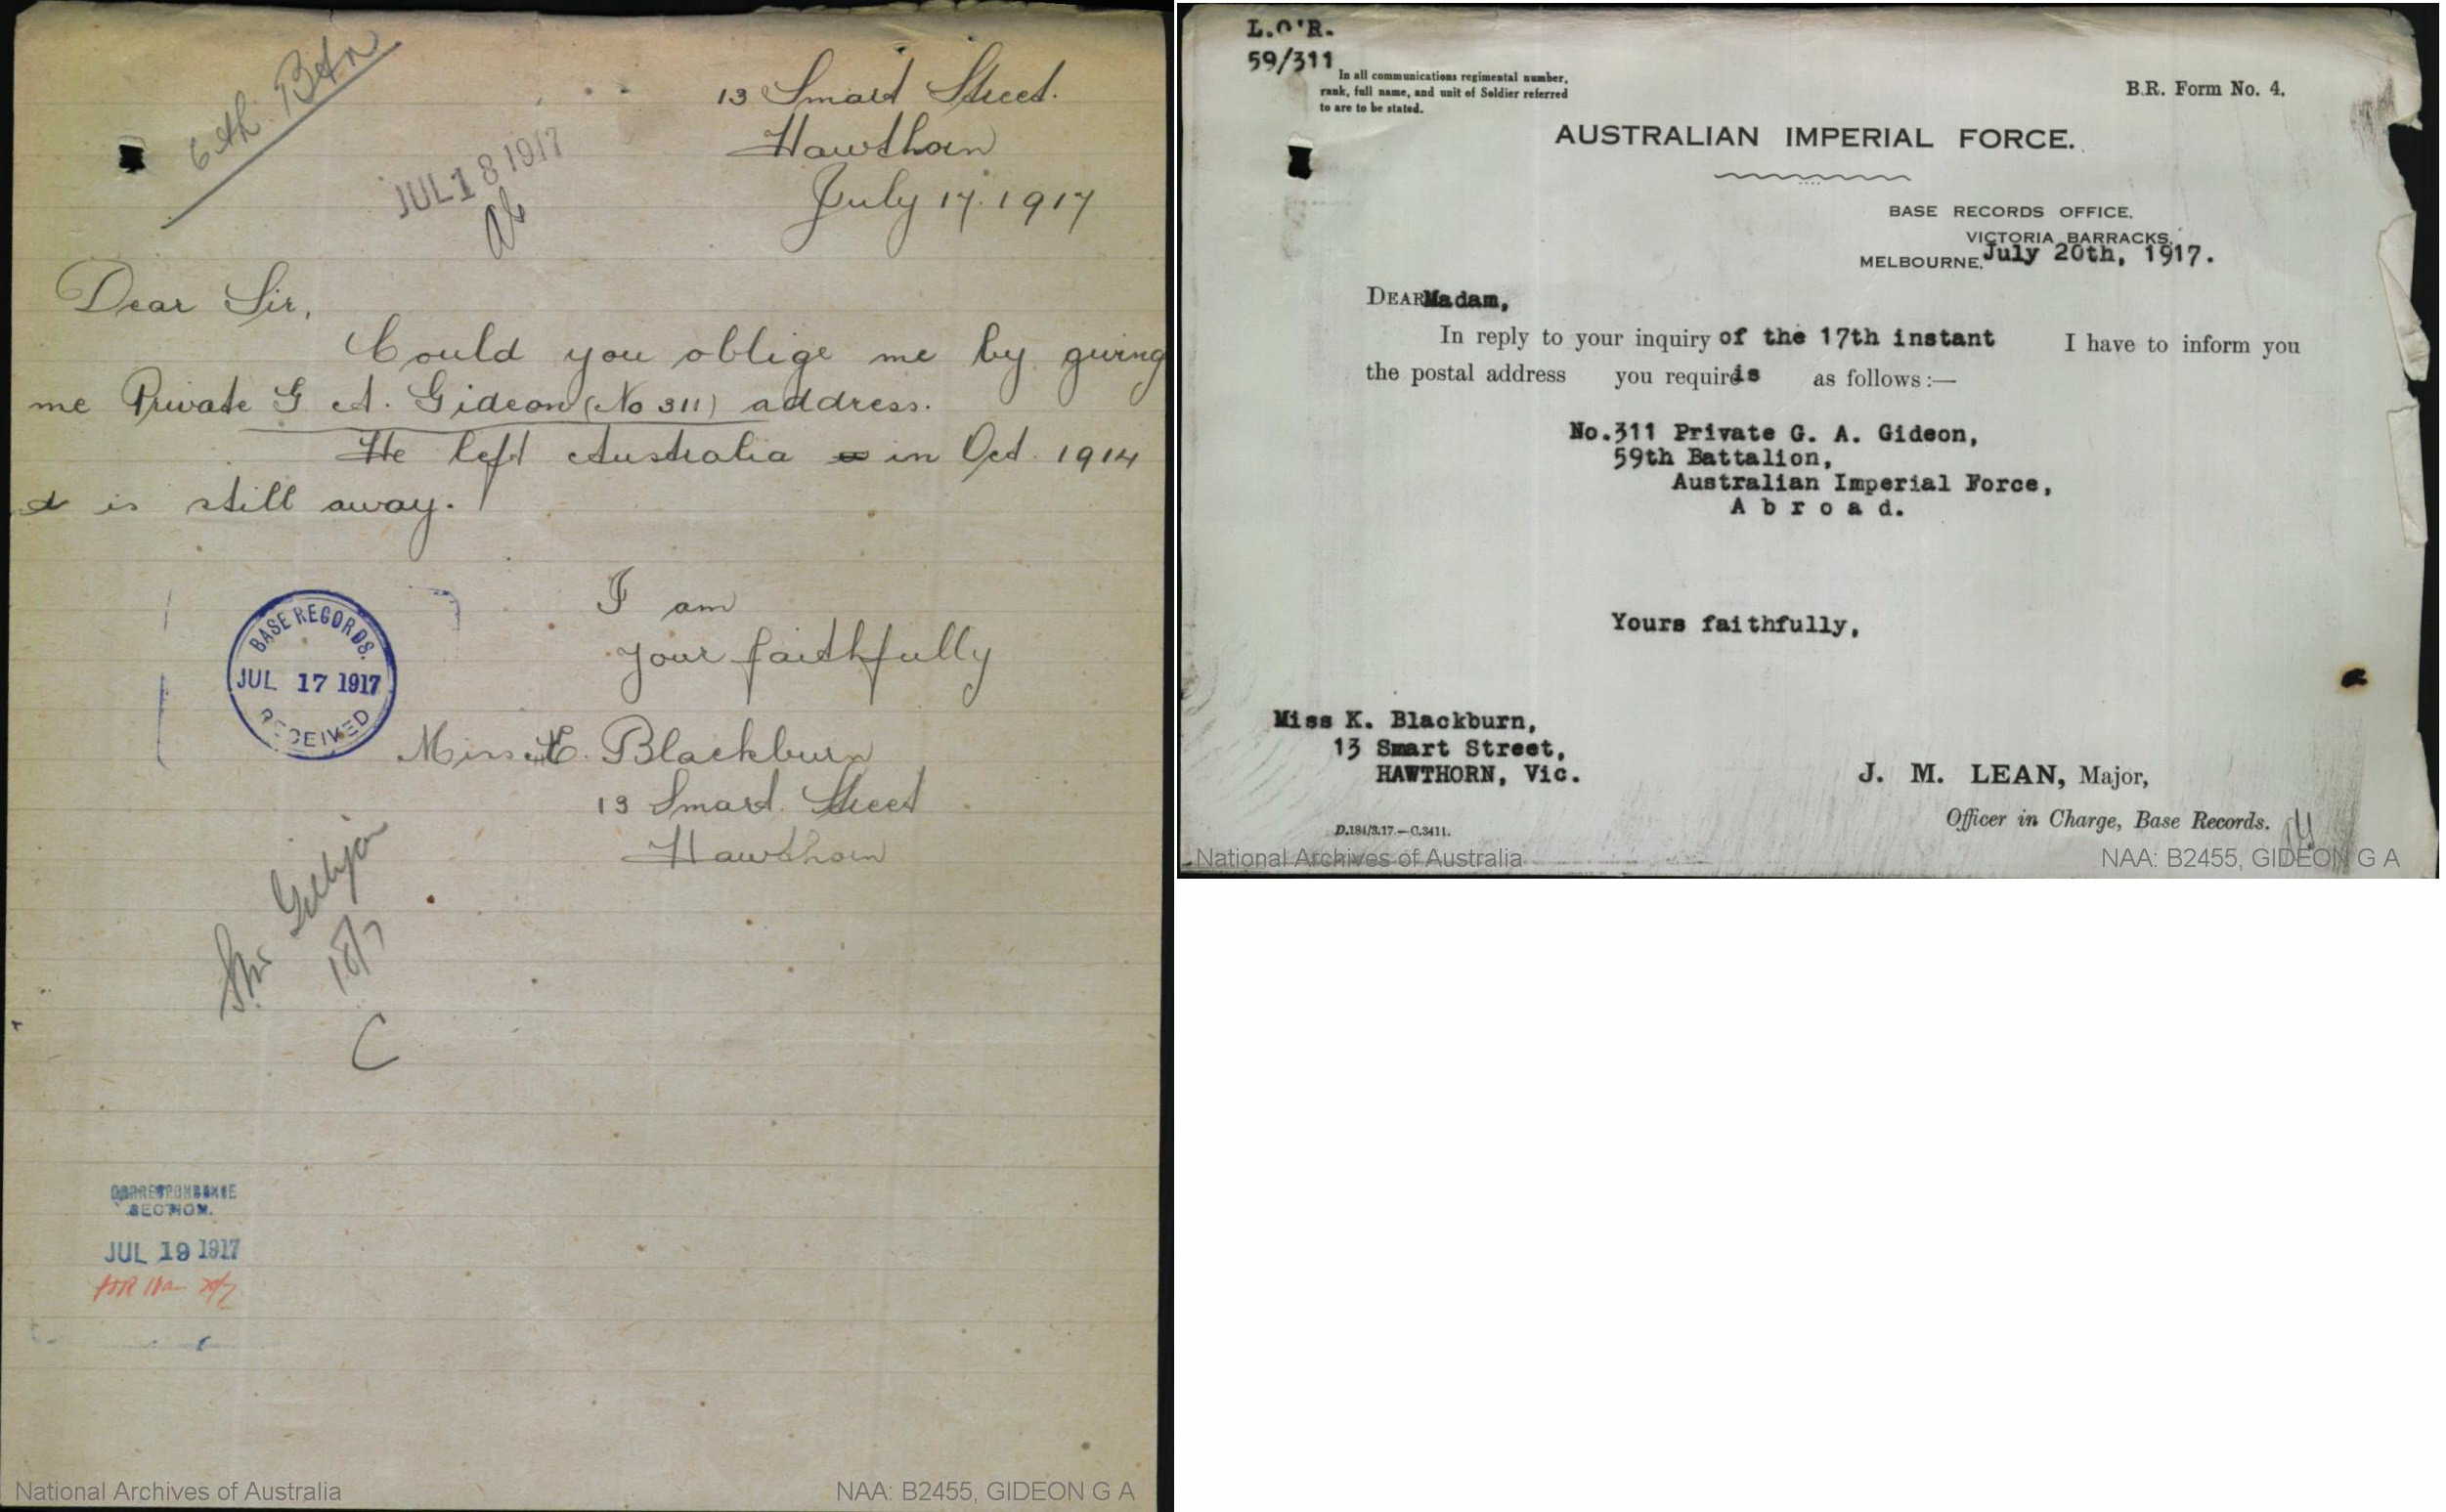 6th. Btn
JUL 18 1917
13 Smart Street.
Hawthorn
July 17. 1917
Dear Sir,
Could you oblige me by giving
me Private G A. Gideon (No 311) address.
He left Australia in Oct. 1914
& is still away.
I am
your faithfully
BASE RECORDS.
JUL 17 1917
RECEIVED
Miss K. Blackburn
13 Smart Street
Hawthorn
18/7
C
CORRESPONDENCE
SECTION.
JUL 19 1917
National Archives of Australia
NAA: B2455, GIDEON G A
L.O'R.
59/311
In all communications regimental number,
rank, full name, and unit of Soldier referred
to are to be stated.
B.R. Form No. 4.
AUSTRALIAN IMPERIAL FORCE.
BASE RECORDS OFFICE,
VICTORIA BARRACKS,
MELBOURNE, July 20th, 1917.
DEAR Madam,
In reply to your inquiry of the 17th instant I have to inform you
the postal address you require is as follows:—
No.311 Private G. A. Gideon,
59th Battalion,
Australian Imperial Force,
A b r o a d.
Yours faithfully,
Miss K. Blackburn,
13 Smart Street,
HAWTHORN, Vic.
J. M. LEAN, Major,
Officer in Charge, Base Records.
D.184/3.17.—C.3411.
National Archives of Australia
NAA: B2455, GIDEON G A